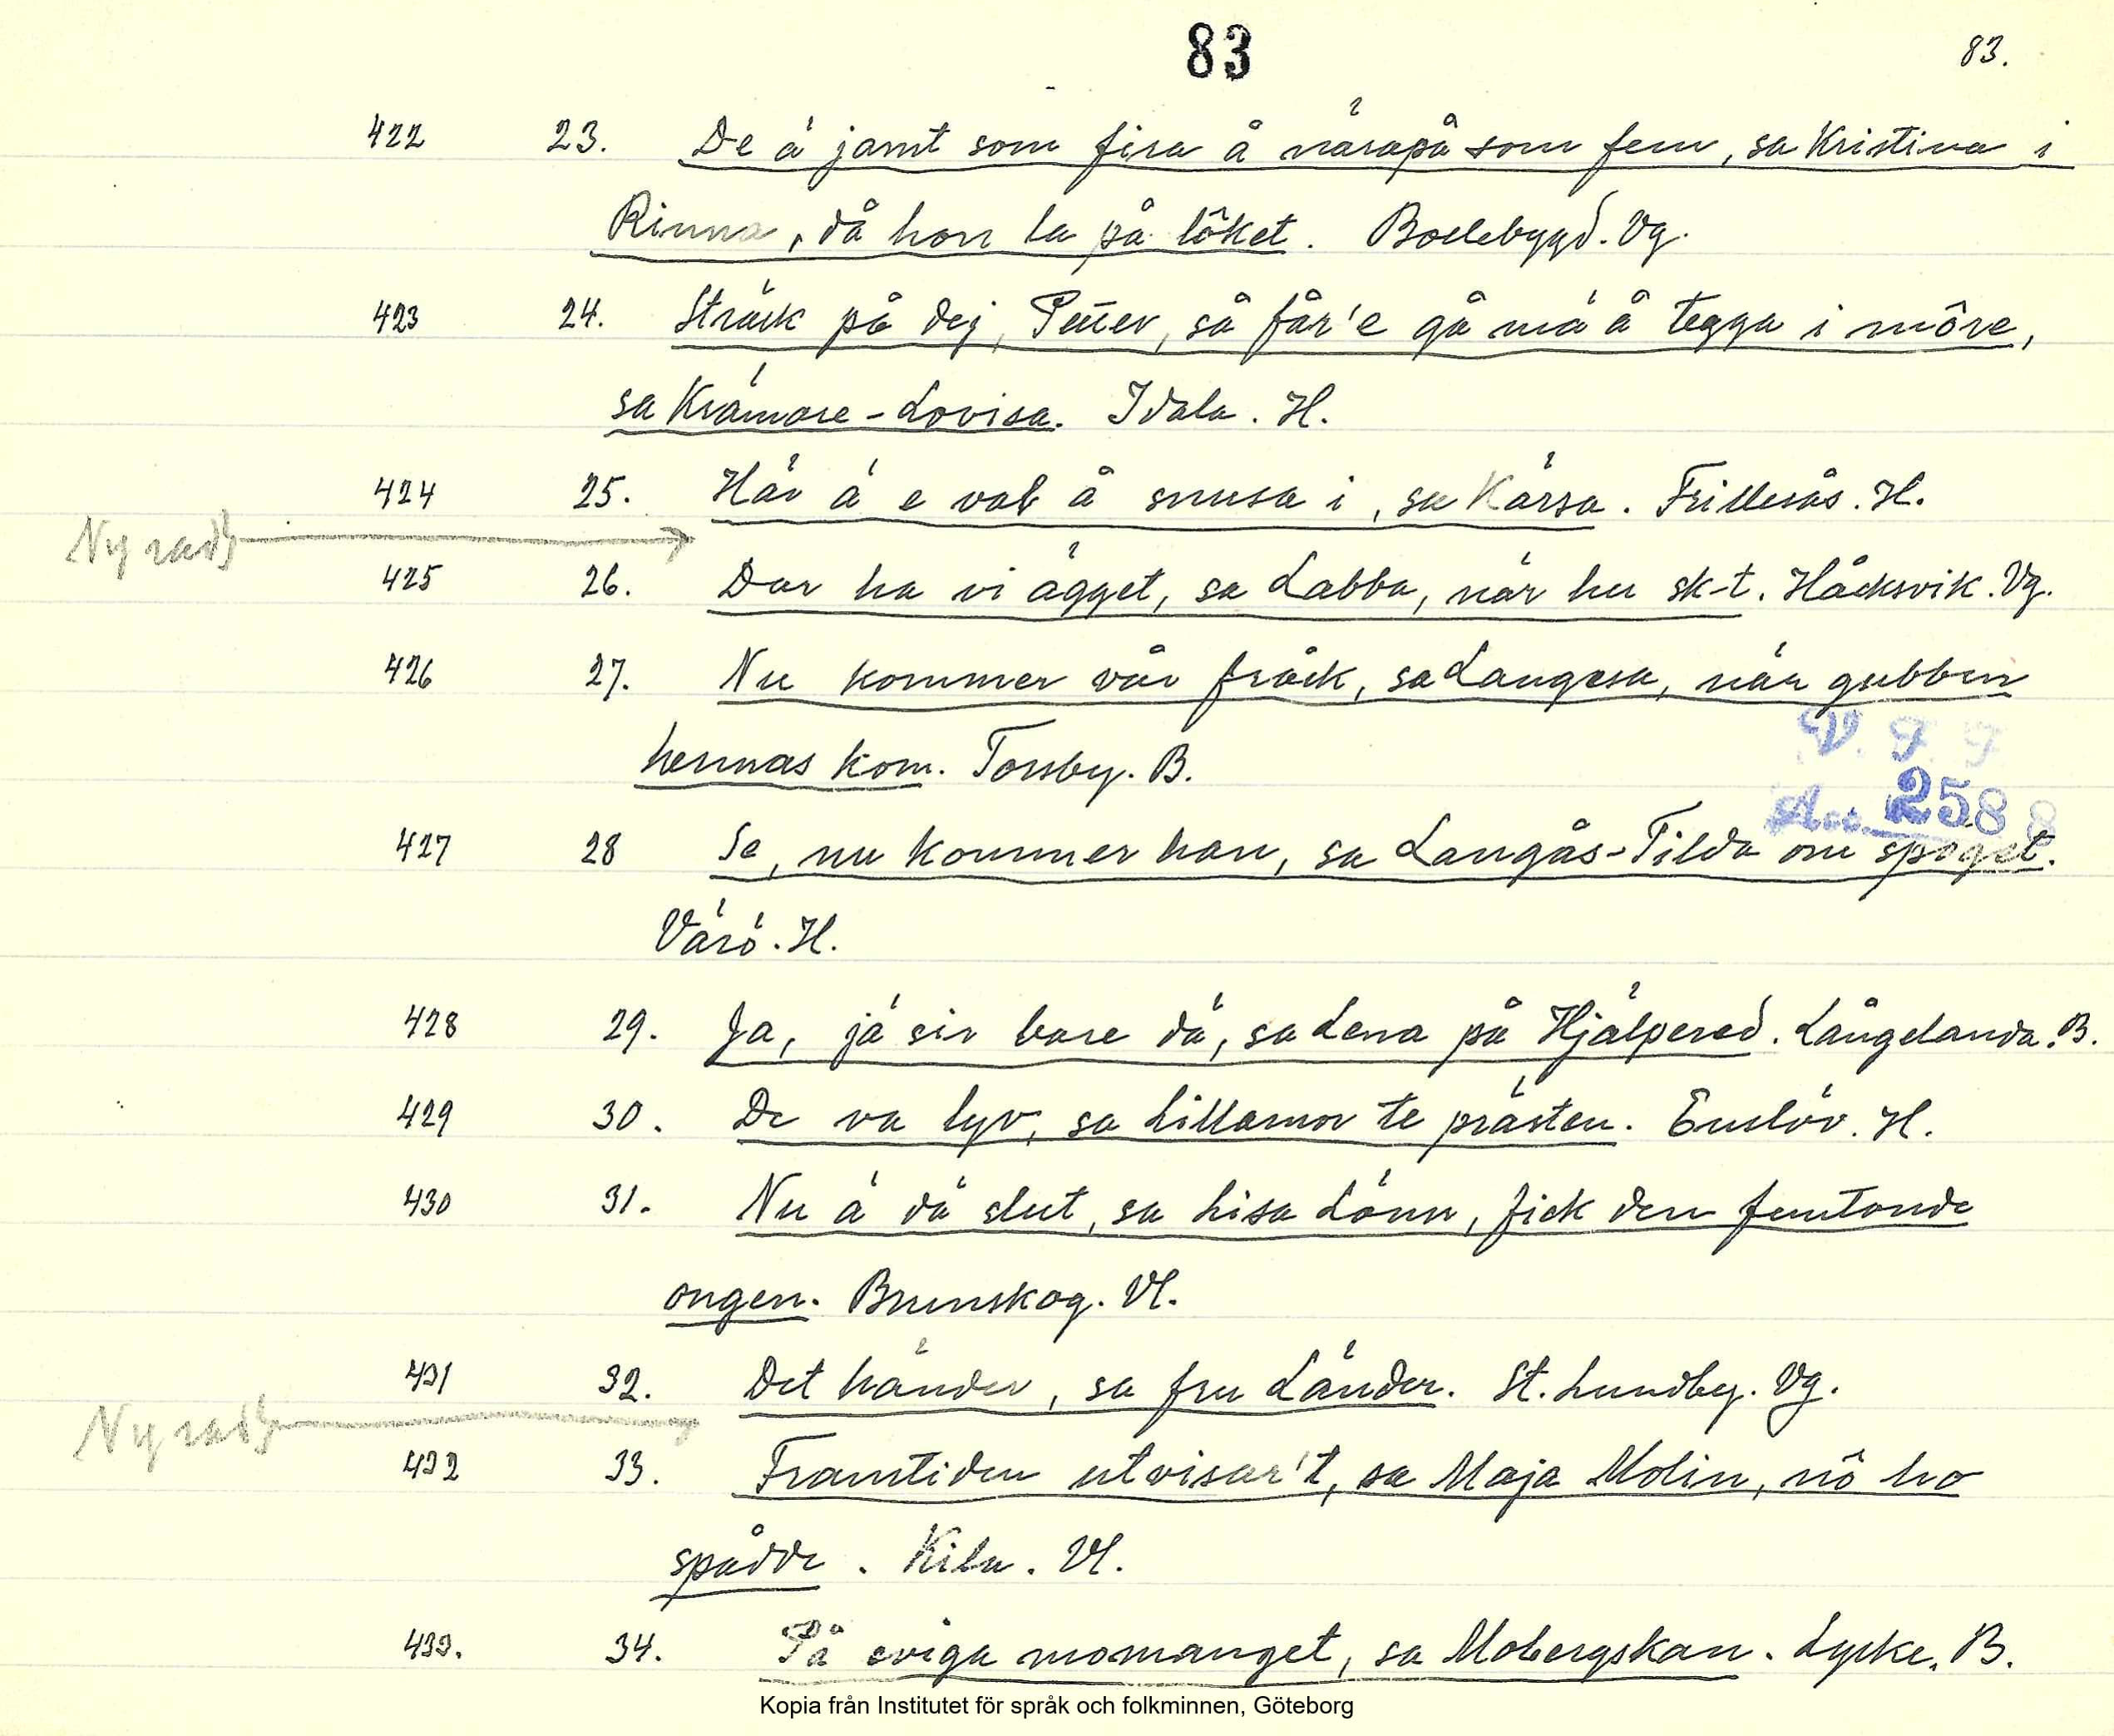 83
83.
422 23. De ä jamt som fira å närapå som fem, sa Kristina i
Rinna, då hon la på löket. Bollebygd. Vg.
423 24. Sträck på dej, Petter, så får'e gå mä å tegga i môre,
sa Krämare-Lovisa. Idala. H.
424 25. Här ä e val å snusa i, sa Kärsa. Frillesås. H.
Ny rad
425 26. Dar ha vi ägget, sa Labba, när hu sk-t. Håcksvik. Vg.
426 27. Nu kommer vår fräck, sa Langesa, när gubben
hennas kom. Torsby. B.
V. F. F
Acc. 2588
427 28 Se, nu kommer han, sa Langås-Tilda om spöget.
Värö. H.
428 29. Ja, jä sir bare dä, sa Lena på Hjälpered. Långelanda. B.
429 30. De va lyv, sa Lillamor te prästen. Enslöv. H.
430 31. Nu ä dä slut, sa Lisa Lönn, fick den femtonde
ongen. Brunskog. Vl.
431 32. Det händer, sa fru Länder. St. Lundby. Vg.
Ny rad
432 33. Framtiden utvisar't, sa Maja Molin, nô ho
spådde. Kila. Vl.
433. 34. På eviga momanget, sa Mobergskan. Lycke. B.
Kopia från Institutet för språk och folkminnen, Göteborg